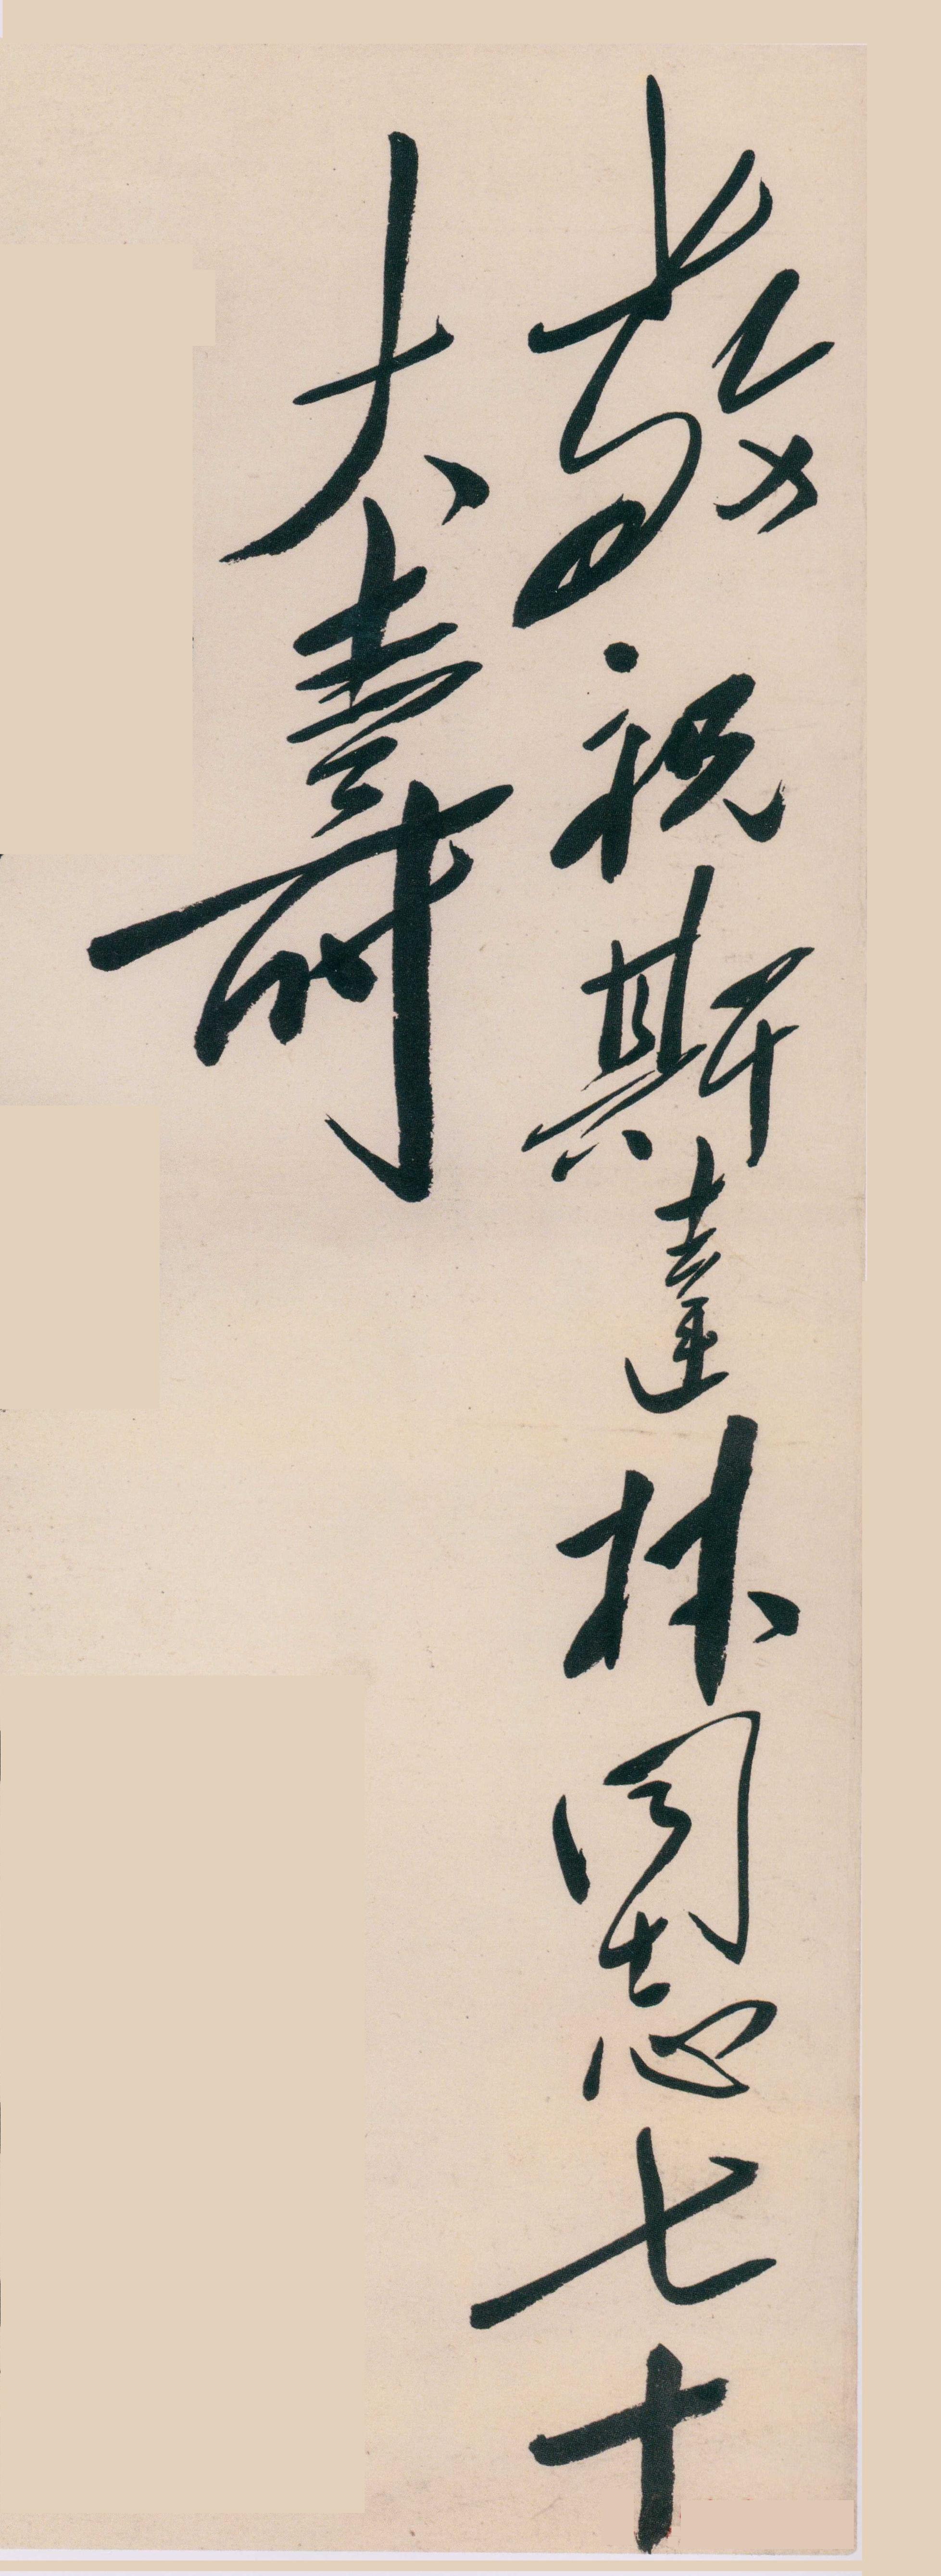 敬祝斯達林同志七十
大壽